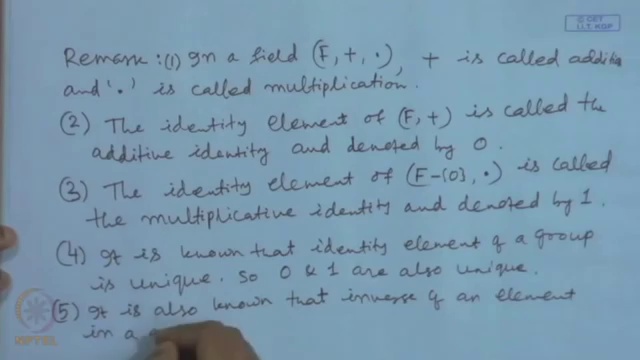 © CET
I.I.T. KGP
Remark: (1) In a field (F, +, ·), + is called additio
and '·' is called multiplication.
(2) The identity element of (F, +) is called the
additive identity and denoted by 0.
(3) The identity element of (F-{0}, ·) is called
the multiplicative identity and denoted by 1.
(4) It is known that identity element of a group
is unique. So 0 & 1 are also unique.
(5) It is also known that inverse of an element
in a
NPTEL